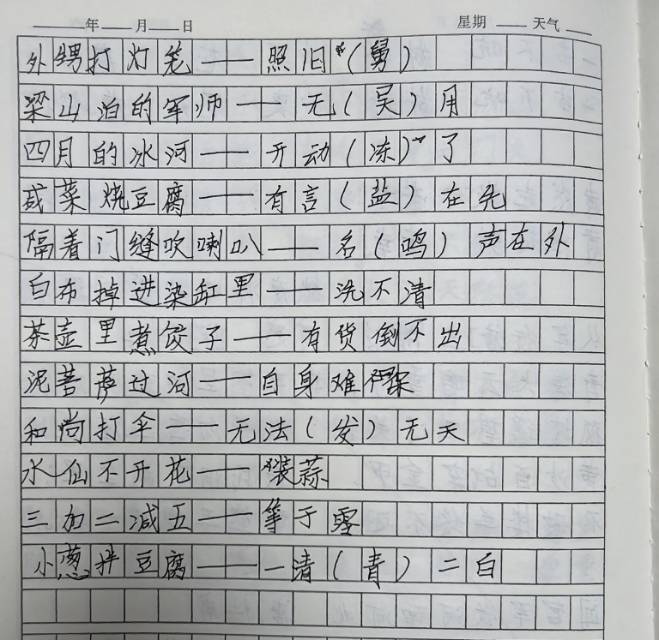 年 月 日 星期 天气
外甥打灯笼——照旧（舅）
梁山泊的军师——无（吴）用
四月的冰河——开动（冻）了
咸菜烧豆腐——有言（盐）在先
隔着门缝吹喇叭——名（鸣）声在外
白布掉进染缸里——洗不清
茶壶里煮饺子——有货倒不出
泥菩萨过河——自身难保
和尚打伞——无法（发）无天
水仙不开花——装蒜
三加二减五——等于零
小葱拌豆腐——一清（青）二白